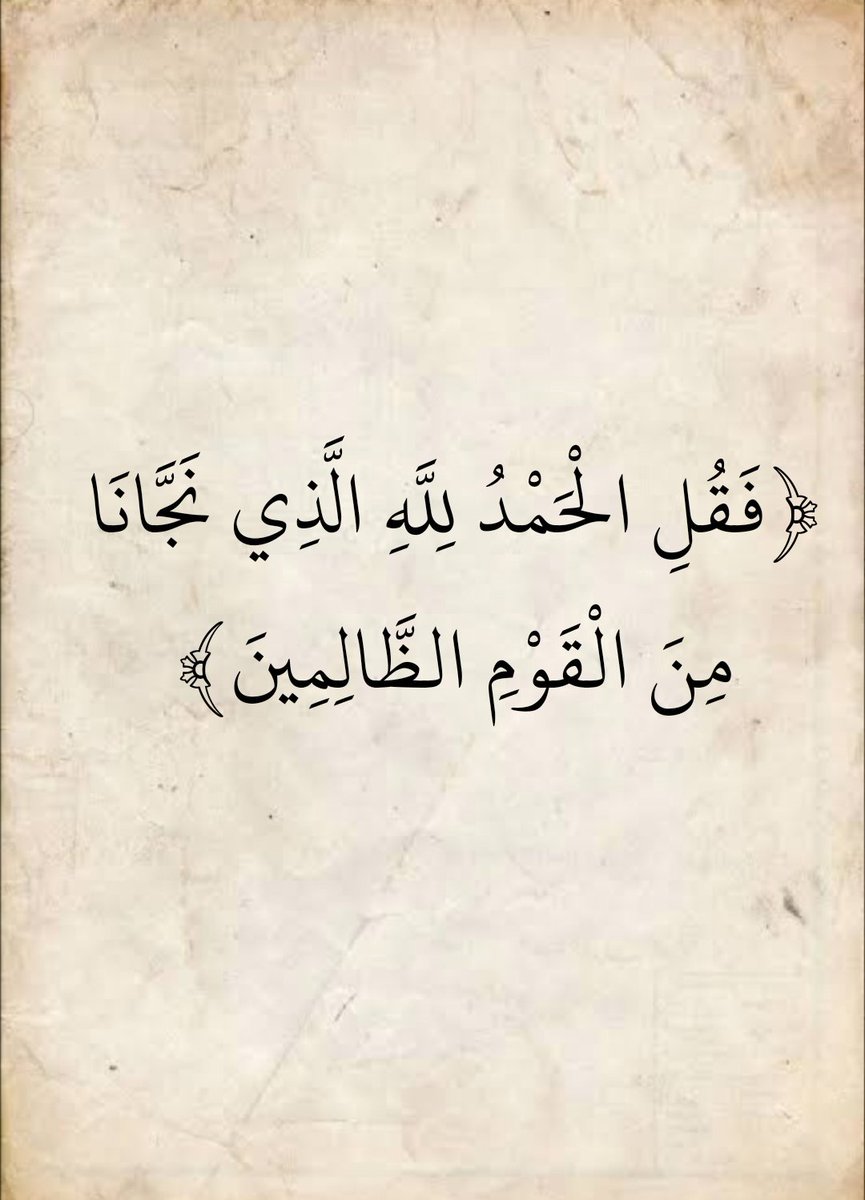 ﴿فَقُلِ الْحَمْدُ لِلَّهِ الَّذِي نَجَّانَا
مِنَ الْقَوْمِ الظَّالِمِينَ﴾